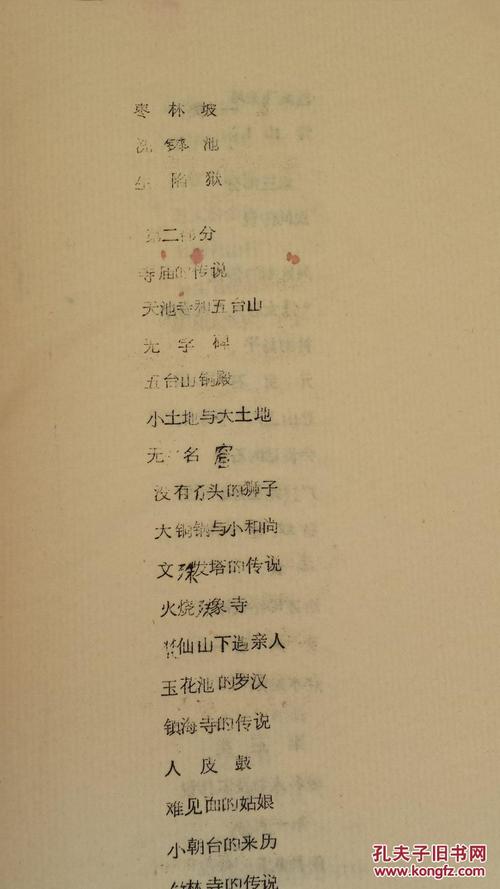 枣林坡
洗钵池
生陷狱
第二部分
寺庙的传说
天池寺和五台山
无字碑
五台山铜殿
小土地与大土地
无名窟
没有石头的狮子
大铜锅与小和尚
文殊发塔的传说
火烧殊象寺
梵仙山下遇亲人
玉花池的罗汉
镇海寺的传说
人皮鼓
难见面的姑娘
小朝台的来历
竹林寺的传说
孔夫子旧书网
www.kongfz.com